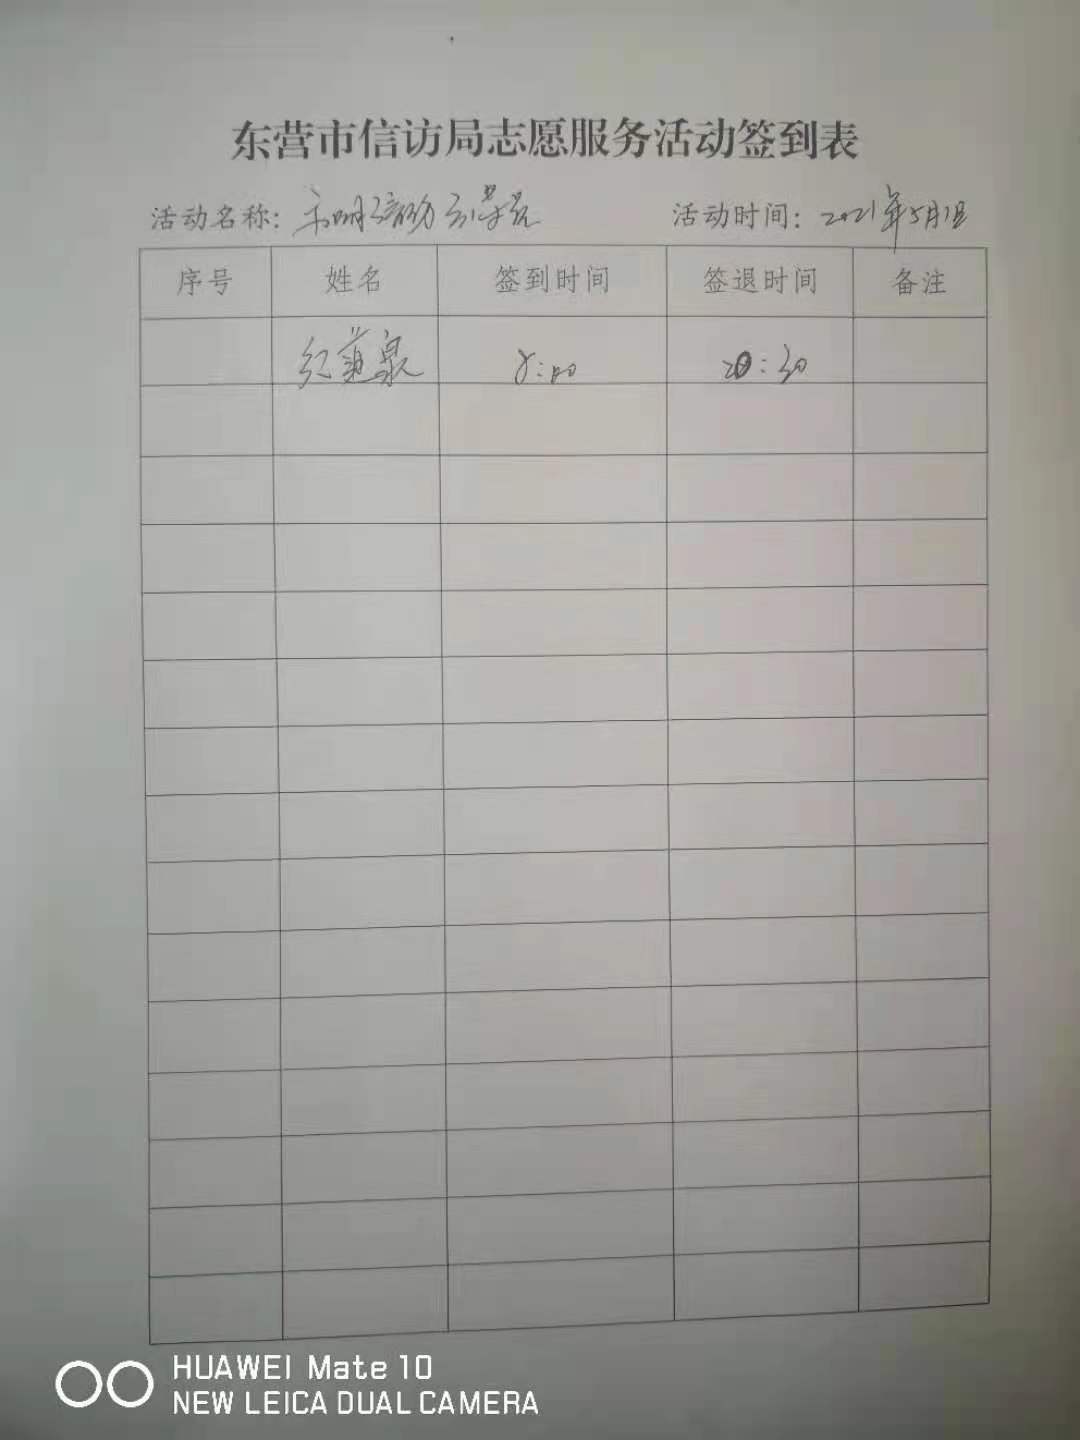 东营市信访局志愿服务活动签到表
活动名称：文明交通劝导员 活动时间：2021年5月1日
序号 姓名 签到时间 签退时间 备注
8:00 20:30
HUAWEI Mate 10
NEW LEICA DUAL CAMERA